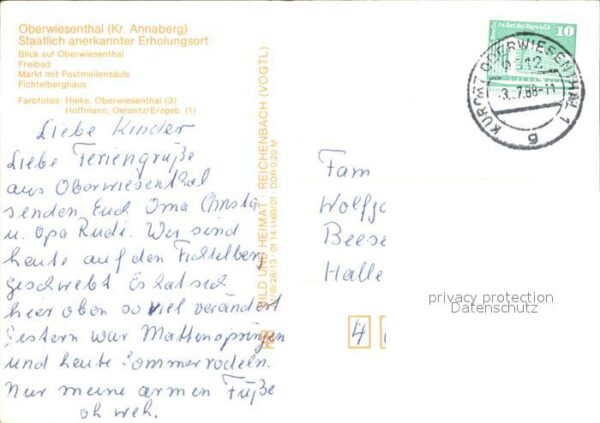 Oberwiesenthal (Kr. Annaberg)
Staatlich anerkannter Erholungsort
Blick auf Oberwiesenthal
Freibad
Markt mit Postmeilensäule
Fichtelberghaus
Farbfotos: Hieke, Oberwiesenthal (3)
Hoffmann, Oelsnitz/Erzgeb. (1)
Liebe Kinder
Liebe Feriengrüße
aus Oberwiesenthal
senden Euch Oma Christa
u. Opa Rudi. Wir sind
heute auf den Fichtelberg
geschwebt. Es hat sich
hier oben so viel verändert
Gestern war Mattenspringen
und heute Sommerrodeln.
Nur meine armen Füße
oh weh.
BILD UND HEIMAT REICHENBACH (VOGTL)
01 14 1160/01 DDR 0,20 M
10
KURORT OBERWIESENTHAL 1
9312
-3.-7.88-11
g
Fam
Wolfg
Beese
Halle
4
privacy protection
Datenschutz